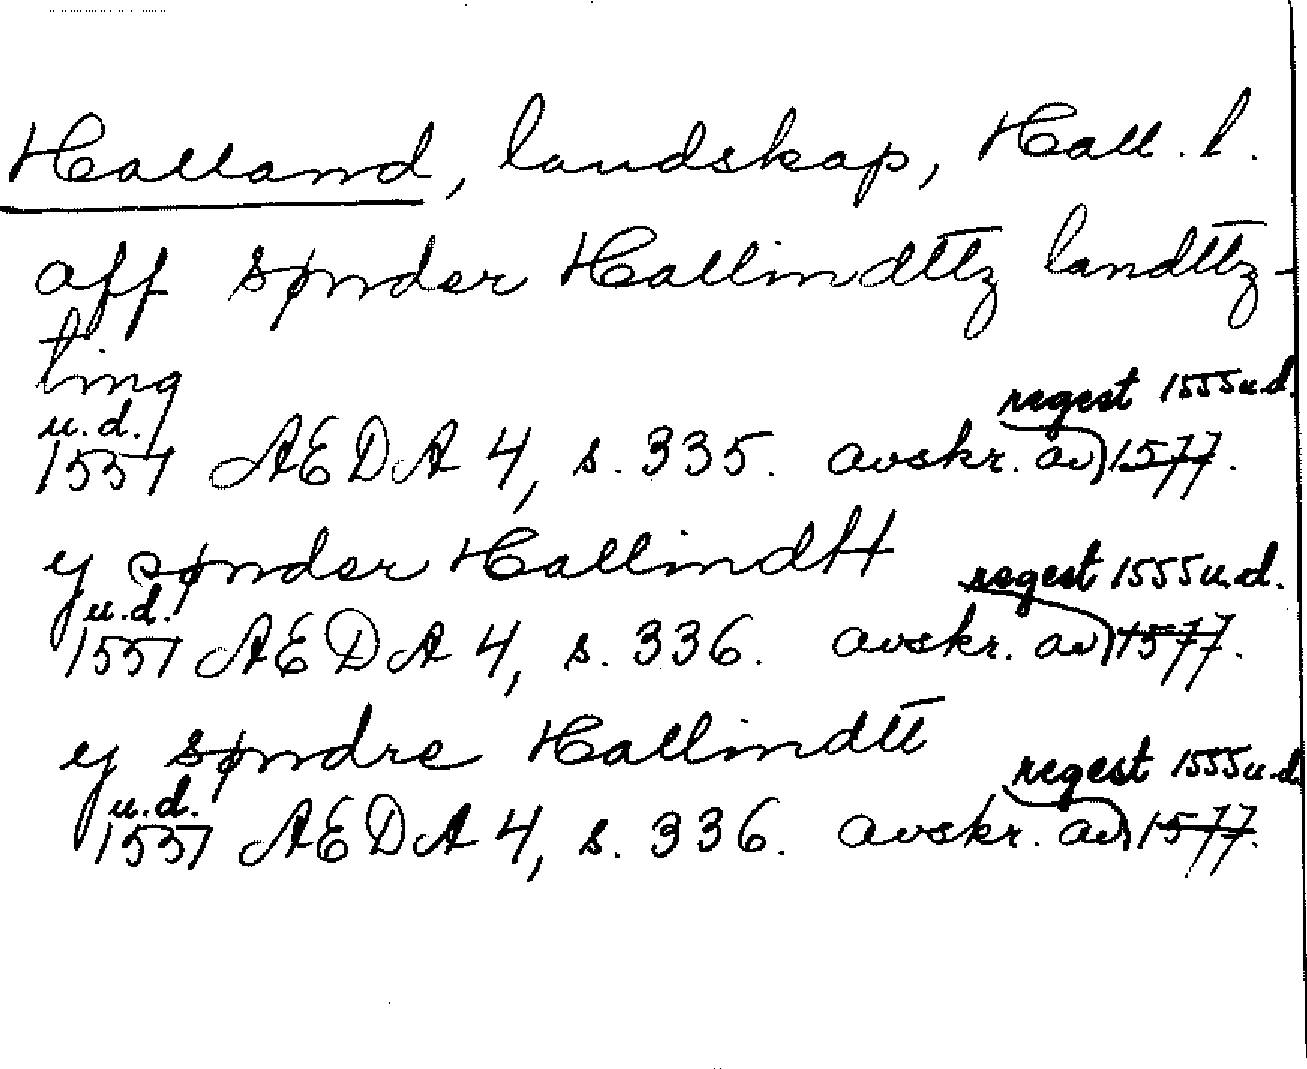 Halland, landskap, Hall. l.
aff sønder Hallindttz landttz-
ting
u.d. regest 1555 u.d.
1537 AEDA 4, s. 335. avskr. av 1577.
y sønder Hallindtt
u.d. regest 1555 u.d.
1537 AEDA 4, s. 336. avskr. av 1577.
y søndre Hallindtt
u.d. regest 1555 u.d.
1537 AEDA 4, s. 336. avskr. av 1577.